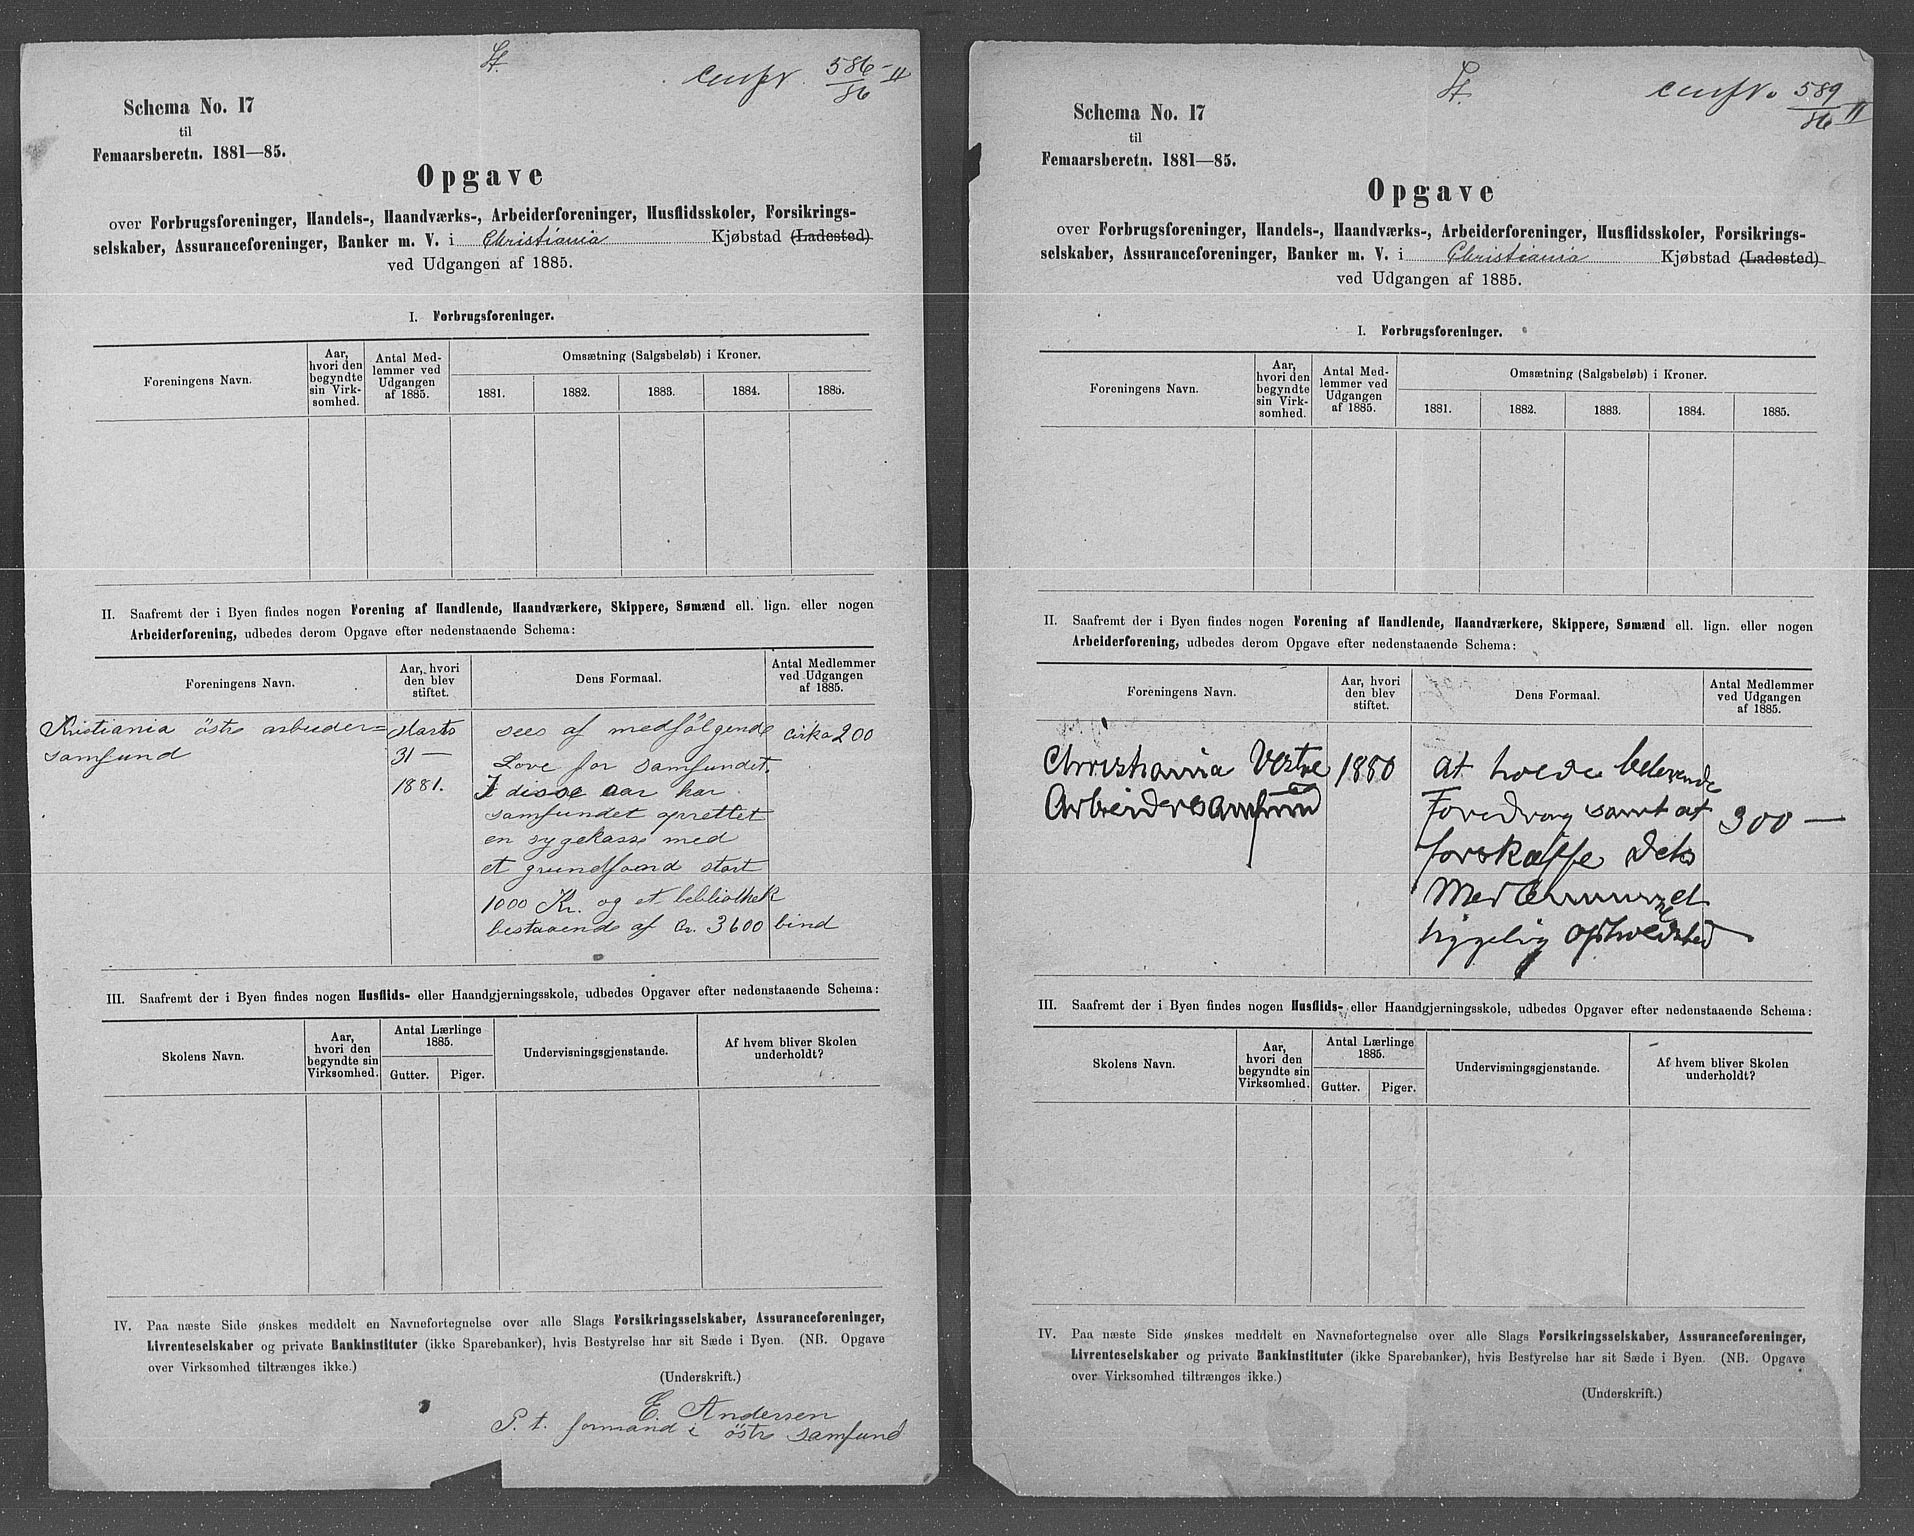 St.
586/86 II
Schema No. 17
til
Femaarsberetn. 1881—85.
Opgave
over Forbrugsforeninger, Handels-, Haandværks-, Arbeiderforeninger, Husflidsskoler, Forsikrings-
selskaber, Assuranceforeninger, Banker m. V. i Christiania Kjøbstad (Ladested)
ved Udgangen af 1885.
I. Forbrugsforeninger.
Foreningens Navn.
Aar,
hvori den
begyndte
sin Virk-
somhed.
Antal Med-
lemmer ved
Udgangen
af 1885.
Omsætning (Salgsbeløb) i Kroner.
1881. 1882. 1883. 1884. 1885.
II. Saafremt der i Byen findes nogen Forening af Handlende, Haandværkere, Skippere, Sømænd ell. lign. eller nogen
Arbeiderforening, udbedes derom Opgave efter nedenstaaende Schema:
Foreningens Navn.
Aar, hvori
den blev
stiftet.
Dens Formaal.
Antal Medlemmer
ved Udgangen
af 1885.
Kristiania östre arbeider=
samfund
Marts
31 —
1881.
sees af medfölgende
Love for samfundet.
I disse aar har
samfundet oprettet
en sygekasse med
et grundfond stort
1000 Kr. og et bibliothek
bestaaende af Cr. 3600 bind
cirka 200
III. Saafremt der i Byen findes nogen Husflids- eller Haandgjerningsskole, udbedes Opgaver efter nedenstaaende Schema:
Skolens Navn.
Aar,
hvori den
begyndte sin
Virksomhed.
Antal Lærlinge
1885.
Gutter. Piger.
Undervisningsgjenstande.
Af hvem bliver Skolen
underholdt?
IV. Paa næste Side ønskes meddelt en Navnefortegnelse over alle Slags Forsikringsselskaber, Assuranceforeninger,
Livrenteselskaber og private Bankinstituter (ikke Sparebanker), hvis Bestyrelse har sit Sæde i Byen. (NB. Opgave
over Virksomhed tiltrænges ikke.)
(Underskrift.)
E. Andersen
P. t. formand i östre samfund
St.
589/86 II
Schema No. 17
til
Femaarsberetn. 1881—85.
Opgave
over Forbrugsforeninger, Handels-, Haandværks-, Arbeiderforeninger, Husflidsskoler, Forsikrings-
selskaber, Assuranceforeninger, Banker m. V. i Christiania Kjøbstad (Ladested)
ved Udgangen af 1885.
I. Forbrugsforeninger.
Foreningens Navn.
Aar,
hvori den
begyndte
sin Virk-
somhed.
Antal Med-
lemmer ved
Udgangen
af 1885.
Omsætning (Salgsbeløb) i Kroner.
1881. 1882. 1883. 1884. 1885.
II. Saafremt der i Byen findes nogen Forening af Handlende, Haandværkere, Skippere, Sømænd ell. lign. eller nogen
Arbeiderforening, udbedes derom Opgave efter nedenstaaende Schema:
Foreningens Navn.
Aar, hvori
den blev
stiftet.
Dens Formaal.
Antal Medlemmer
ved Udgangen
af 1885.
Christiania Vestre
Arbeidersamfund
1880
at holde belærende
Foredrag samt at
forskaffe dets
Medlemmer et
hyggelig opholdsted
300 —
III. Saafremt der i Byen findes nogen Husflids- eller Haandgjerningsskole, udbedes Opgaver efter nedenstaaende Schema:
Skolens Navn.
Aar,
hvori den
begyndte sin
Virksomhed.
Antal Lærlinge
1885.
Gutter. Piger.
Undervisningsgjenstande.
Af hvem bliver Skolen
underholdt?
IV. Paa næste Side ønskes meddelt en Navnefortegnelse over alle Slags Forsikringsselskaber, Assuranceforeninger,
Livrenteselskaber og private Bankinstituter (ikke Sparebanker), hvis Bestyrelse har sit Sæde i Byen. (NB. Opgave
over Virksomhed tiltrænges ikke.)
(Underskrift.)